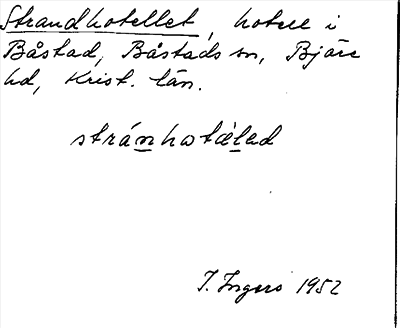 Strandhotellet, hotell i
Båstad, Båstads sn, Bjäre
hd, Krist. län.
stránhotä̀led
I. Ingers 1952